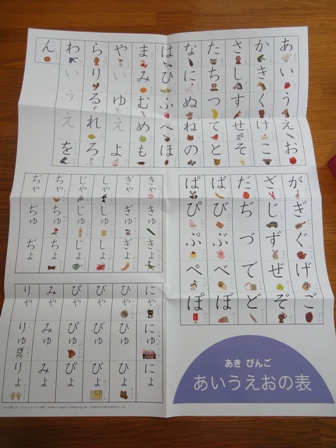 あいうえお
かきくけこ
さしすせそ
たちつてと
なにぬねの
はひふへほ
まみむめも
やいゆえよ
らりるれろ
わいうえを
ん
がぎぐげご
ざじずぜぞ
だぢづでど
ばびぶべぼ
ぱぴぷぺぽ
きゃきゅきょ
ぎゃぎゅぎょ
しゃしゅしょ
じゃじゅじょ
ちゃちゅちょ
ぢゃぢゅぢょ
にゃにゅにょ
ひゃひゅひょ
びゃびゅびょ
ぴゃぴゅぴょ
みゃみゅみょ
りゃりゅりょ
あき びんご
あいうえおの表